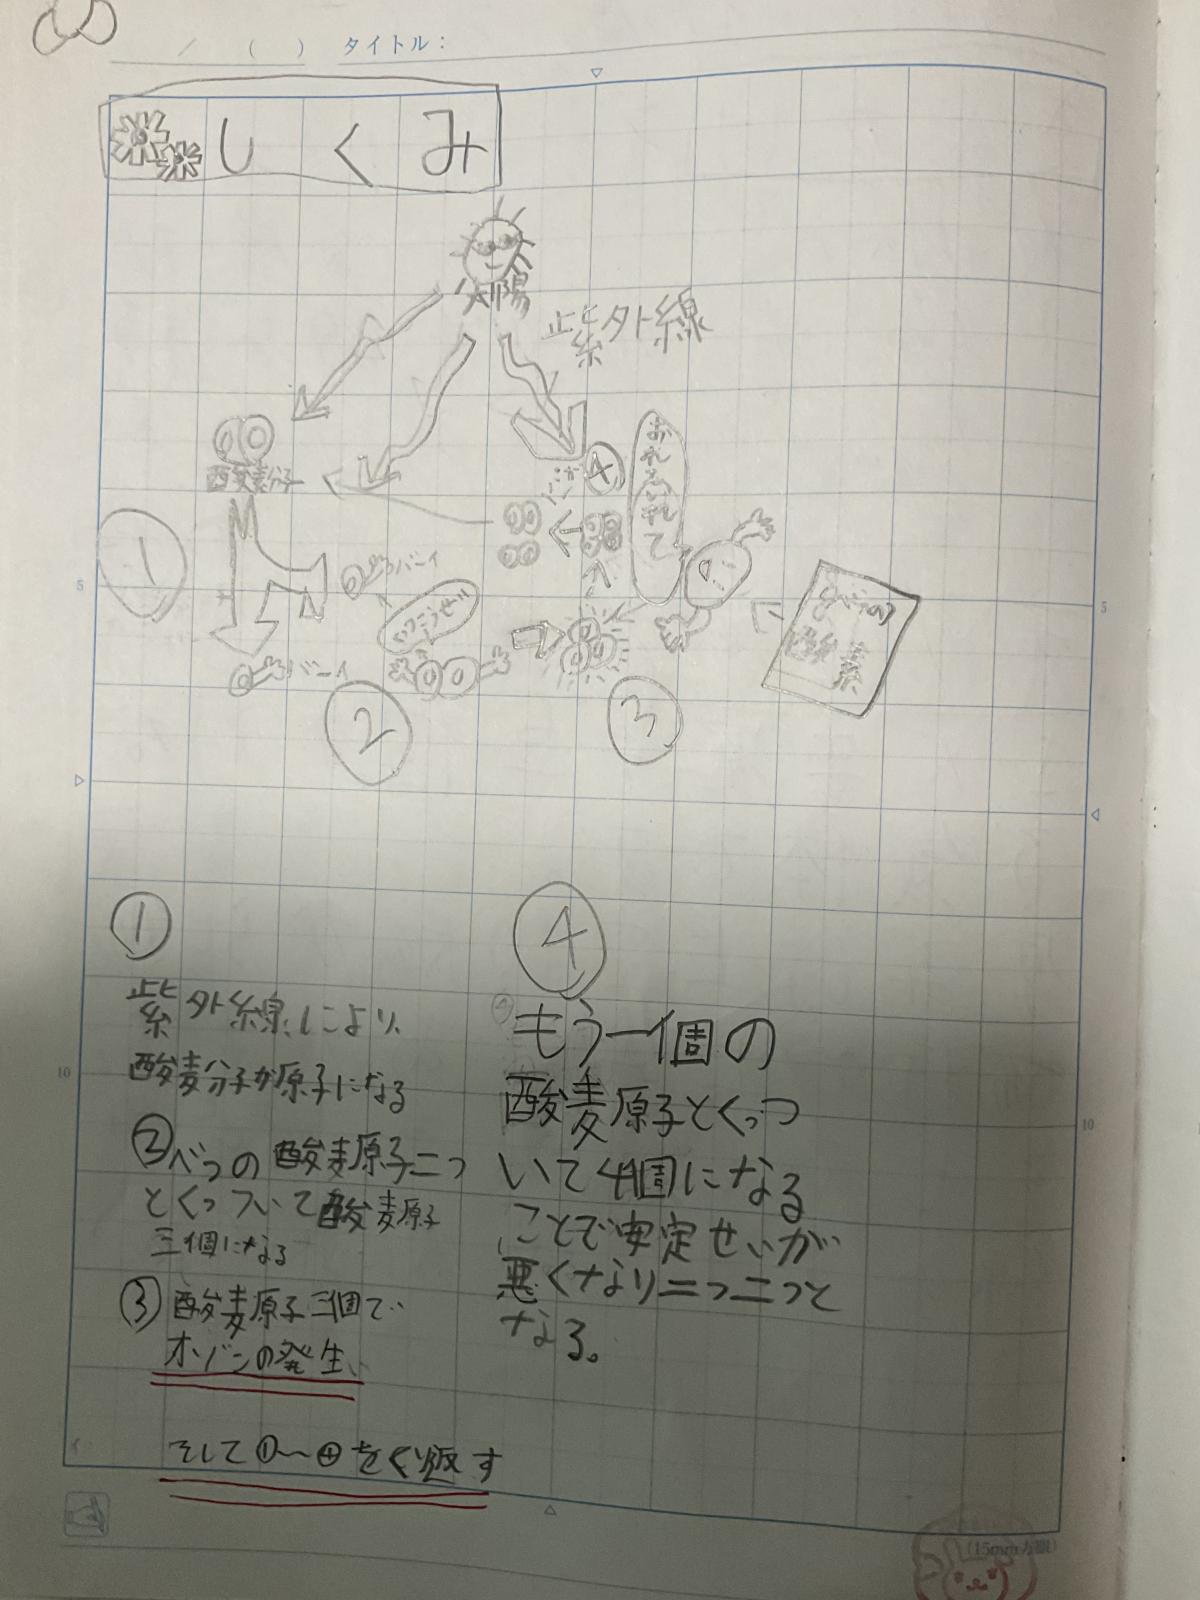 ／ （ ） タイトル：
しくみ
太陽
紫外線
④
酸素分子
①
バーイ
バーイ
②
③
べつの
酸素
5
5
①
紫外線により、
酸素分子が原子になる
②べつの酸素原子二つ
とくっついて酸素原子
三個になる
③酸素原子三個で
オゾンの発生、
そして①〜④をくり返す
④
もう一個の
酸素原子とくっつ
いて4個になる
ことで安定せいが
悪くなり二つ二つと
なる。
10
10
(15mm方眼)